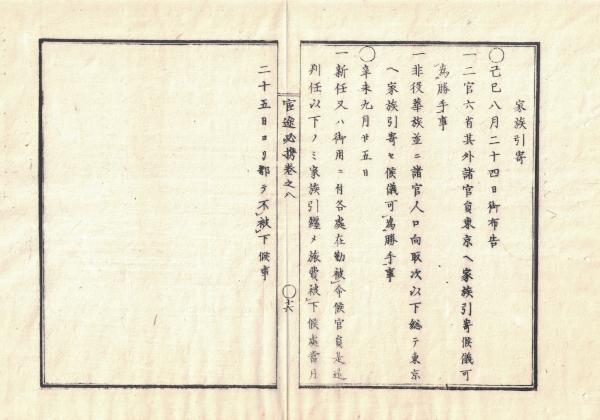 家族引寄
◯己巳八月二十四日御布告
一二官六省其外諸官員東京ヘ家族引寄候儀可
為勝手事
一非役華族並ニ諸官人口向取次以下総テ東京
ヘ家族引寄セ候儀可為勝手事
◯辛未九月廿五日
一新任又ハ御用ニ付各處在勤被命候官員是迄
判任以下ノミ家族引纒メ旅費被下候處當月
官途必携巻之八
◯十六
二十五日ヨリ都テ不被下候事